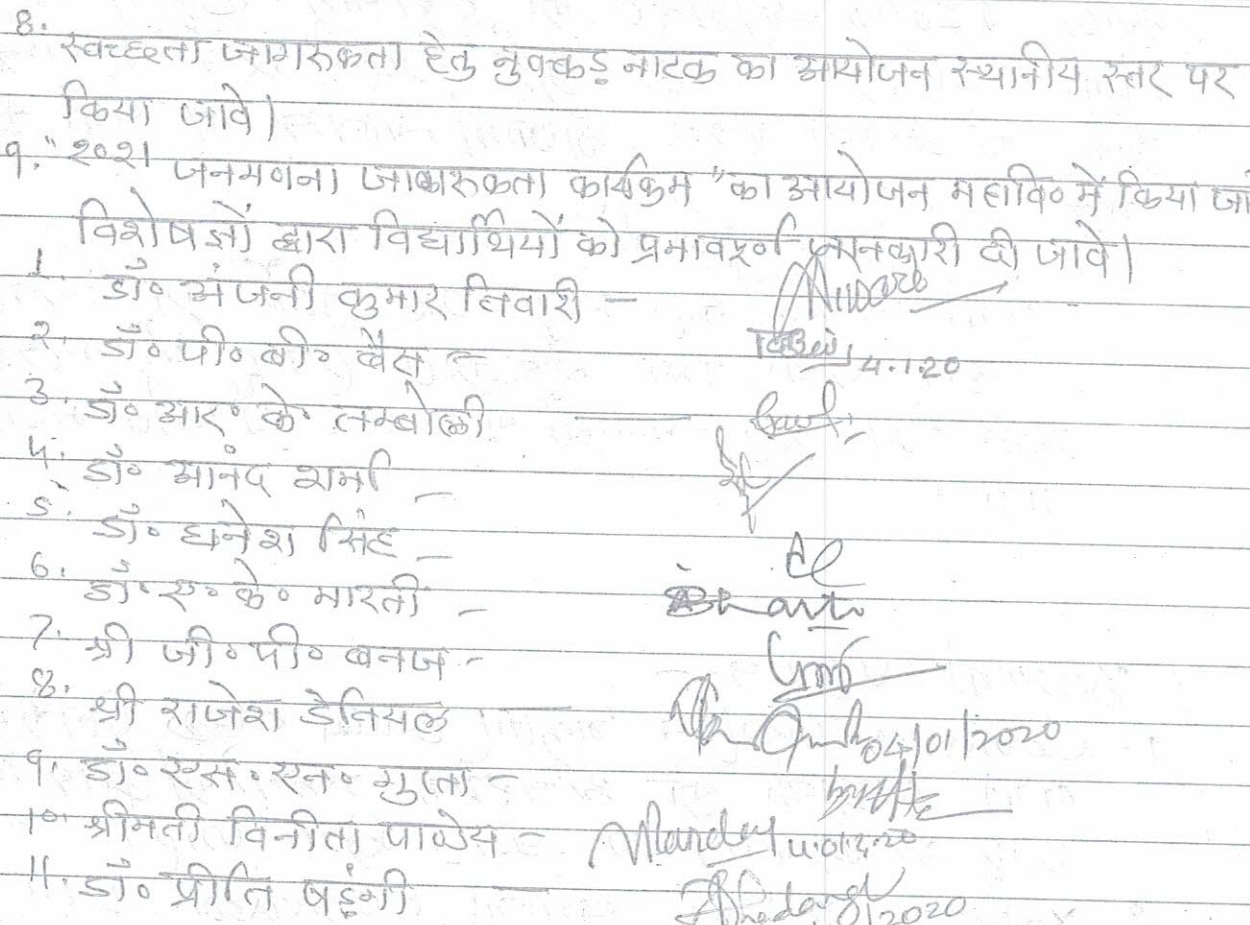 8. स्वच्छता जागरुकता हेतु नुक्कड़ नाटक का आयोजन स्थानीय स्तर पर
किया जावे।
9. "2021 जनगणना जागरुकता कार्यक्रम" का आयोजन महावि० में किया जा
विशेषज्ञों द्वारा विद्यार्थियों को प्रभावपूर्ण जानकारी दी जावे।
1. डॉ० अंजनी कुमार तिवारी -
2. डॉ० पी० बी० बैस - 4.1.20
3. डॉ० आर० के० तम्बोली —
4. डॉ० आनंद शर्मा -
5. डॉ० धनेश सिंह -
6. डॉ० ए० के० भारती - Bharti
7. श्री जी० पी० बनज -
8. श्री राजेश डेनियल — 04/01/2020
9. डॉ० एस० एन० गुप्ता -
10. श्रीमती विनीता पाण्डेय -
11. डॉ० प्रीति षड़ंगी — 2020